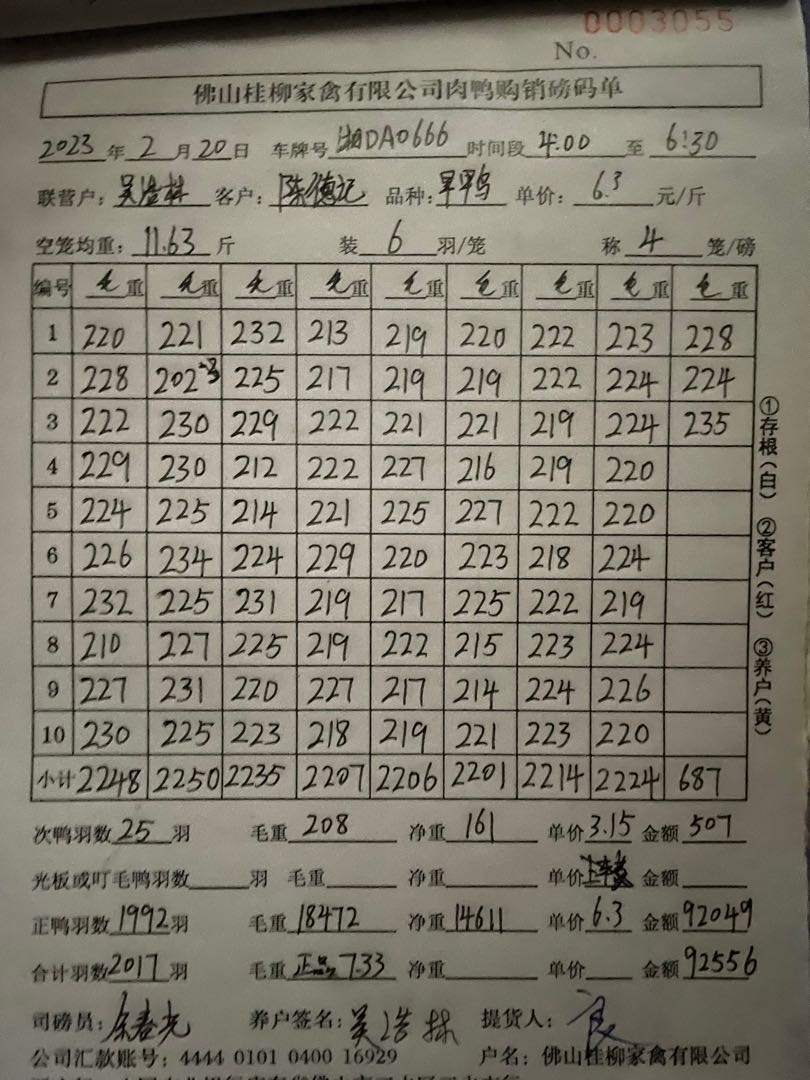 0003055
No.
佛山桂柳家禽有限公司肉鸭购销磅码单
2023年2月20日 车牌号湘DA0666 时间段4:00至6:30
联营户：吴浩林 客户：陈德记 品种：旱鸭 单价：6.3元/斤
空笼均重：11.63斤 装6羽/笼 称4笼/磅
编号 毛重 毛重 毛重 毛重 毛重 毛重 毛重 毛重 毛重
1 220 221 232 213 219 220 222 223 228
2 228 202-3 225 217 219 219 222 224 224
3 222 230 229 222 221 221 219 224 235
4 229 230 212 222 227 216 219 220
5 224 225 214 221 225 227 222 220
6 226 234 224 229 220 223 218 224
7 232 225 231 219 217 225 222 219
8 210 227 225 219 222 215 223 224
9 227 231 220 227 217 214 224 226
10 230 225 223 218 219 221 223 220
小计 2248 2250 2235 2207 2206 2201 2214 2224 687
①存根（白） ②客户（红） ③养户（黄）
次鸭羽数25羽 毛重208 净重161 单价3.15 金额507
光板或叮毛鸭羽数 羽 毛重 净重 单价 金额
正鸭羽数1992羽 毛重18472 净重14611 单价6.3 金额92049
合计羽数2017羽 毛重正品7.33 净重 单价 金额92556
司磅员： 养户签名：吴浩林 提货人：良
公司汇款账号：4444 0101 0400 16929 户名：佛山桂柳家禽有限公司